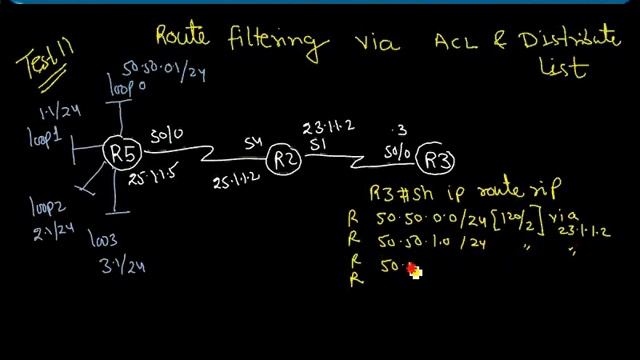 Test 11
Route filtering via ACL & Distribute
List
50.50.0.1/24
loop 0
1.1/24
loop1
R5
S0/0
25.1.1.5
S4
25.1.1.2
R2
23.1.1.2
S1
.3
S0/0
R3
loop2
2.1/24
loo3
3.1/24
R3#sh ip route rip
R 50.50.0.0/24 [120/2] via
23.1.1.2
R 50.50.1.0/24 " "
R 50.
R